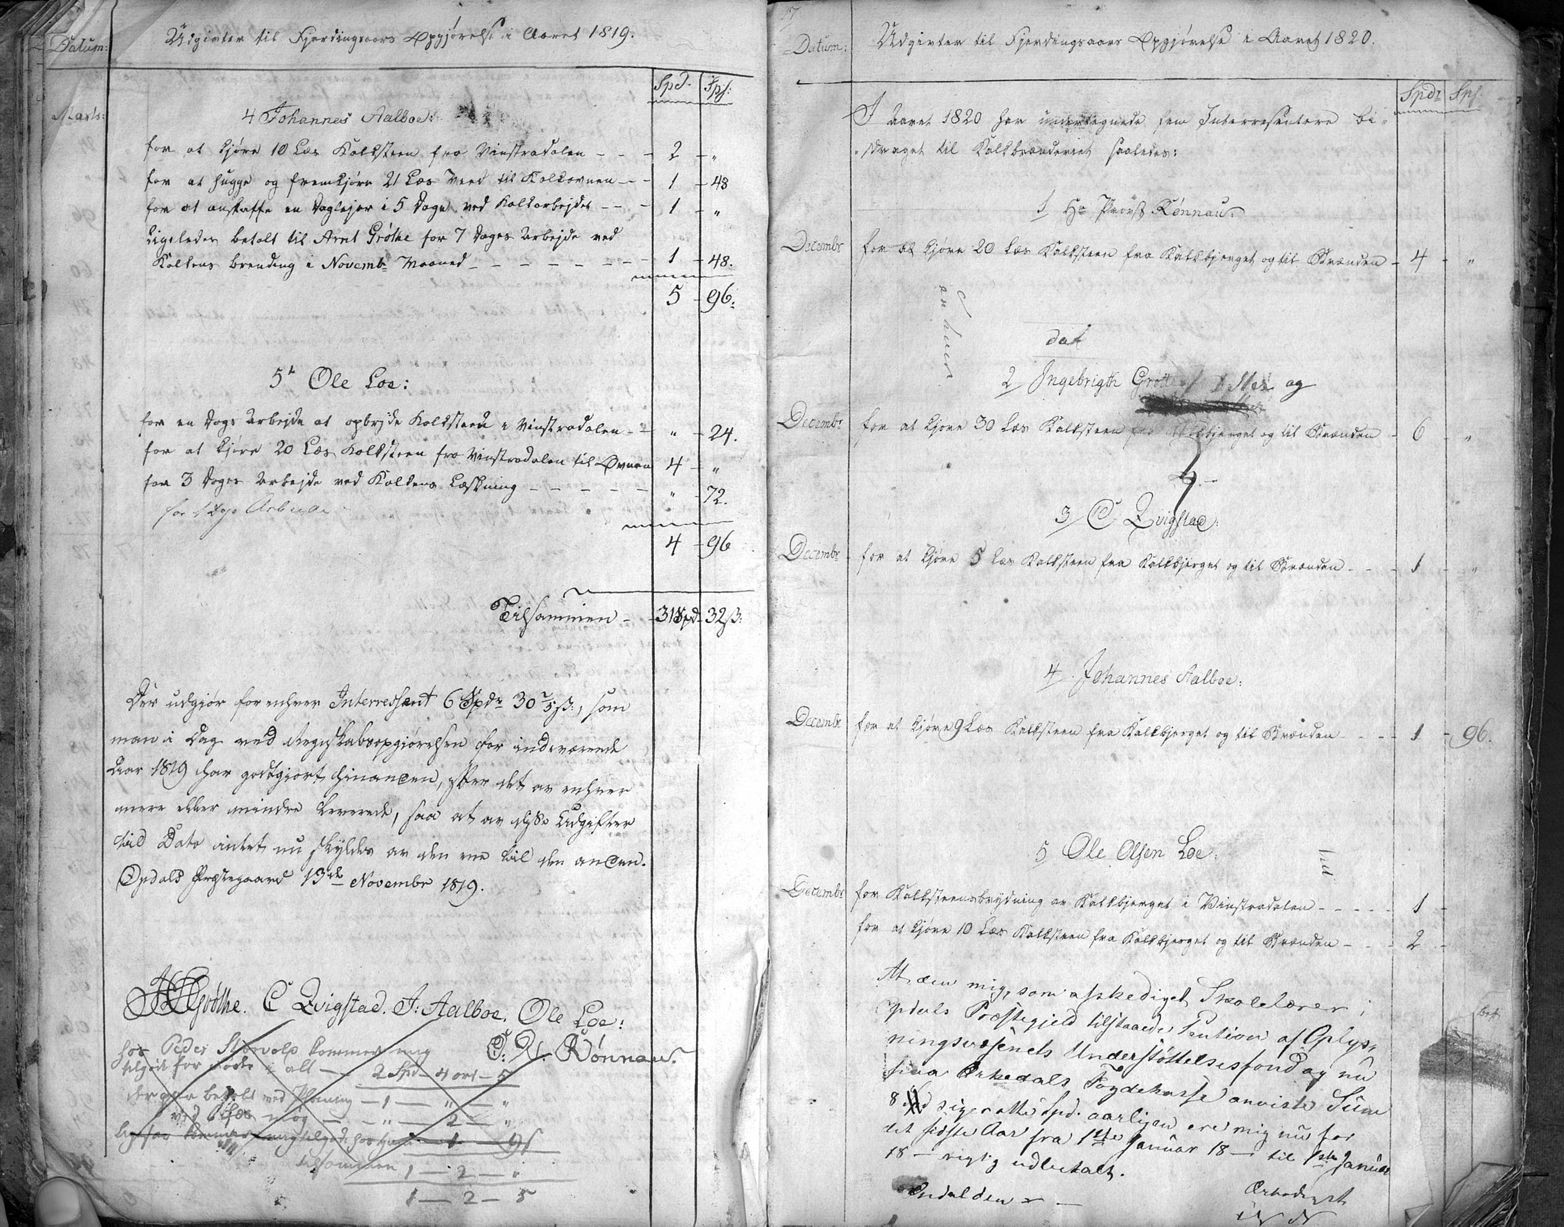 Datum:
Udgivter til Fjerdingsaars Opgjørelse i Aaret 1819.
Spd. Sps:
Marts:
4 Johannes Aalboe:
for at kjøre 10 Læs Kalksteen fra Vinstradalen - - - 2 - "
for at hugge og fremkjøre 21 Læs Veed til Kalkovnen - - 1 - 48
for at anskaffe en Dagleier i 5 Dage ved Kalkarbejdet - - 1 - "
Ligeledes betalt til Arnt Grøthe for 7 Dages Arbejde ved
Kalkens brending i Novembr Maaned - - - - 1 - 48.
5 - 96:
5t Ole Loe:
for en Dags Arbejde at opbryde Kalksteen i Vinstradalen - " - 24.
for at kjøre 20 Læs Kalksteen fra Vinstradalen til Ovnen 4 - "
for 3 Dages Arbejde ved Kalkens Læskning - - - - " - 72.
for 1 Dags Arbeide
4 - 96
Tilsammen - 31 Spd - 32 ß:
Der udgjør for enhver Interressent 6 Spdr 30 2/5 ß:, som
man i Dag ved Regnskabsopgjørelsen for indeværende
Aar 1819 har godtgjort hinanden, efter det av enhver
mere eller mindre leverede, saa at av disse Udgifter
til Dato intet nu skyldes av den ene til den anden.
Opdals Præstegaard 13de Novembr 1819.
Grøthe. C Qvigstad. J: Aalboe. Ole Loe:
Rønnau.
hos Peder kommer mig
tilgode for i alt - 2 Spd - 4 ort - 5
betalt ved - 1 - " - "
- " - 2 - "
tilsammen 1 - 2 - "
1 - 2 - 5
17
Datum:
Udgivter til Fjerdingsaars Opgjørelse i Aaret 1820.
Spdr Sps:
I Aaret 1820 har undertegnede fem Interressentere bi-
draget til Kalkbrænderiet saaledes:
1 Hr Provst Rønnau.
Decembr for at kjøre 20 Læs Kalksteen fra Kalkbjerget og til Strænden - 4 - "
enhver
dat
2/ Ingebrigth Grøtte og
Decembr for at kjøre 30 Læs Kalksteen fra Kalkbjerget og til Strænden - 6 - "
3/ C Qvigstad:
Decembr for at kjøre 5 Læs Kalksteen fra Kalkbjerget og til Strænden - - - 1 - "
4/ Johannes Aalboe:
Decembr for at kjøre 9 Læs Kalksteen fra Kalkbjerget og til Strænden - - - 1 - 96.
5 Ole Olsen Loe:
Decembr for Kalksteensbrydning av Kalkbjerget i Vinstradalen - - - - 1 -
for at kjøre 10 Læs Kalksteen fra Kalkbjerget og til Strænden - - - 2 -
At den mig, som afskediget Skolelærer i
Opdals Præstegjeld tilstaaede Pention af Oplys-
ningsvæsenets Understøttelsesfond og nu
fra Orkedals Fogdekasse anviste Sum
8 siger otte Spd. aarligen ere mig nu for
det sidste Aar fra 1ste Januar 18 - til 1ste Januar
18 - rigtig udbetalt.
Opdal den